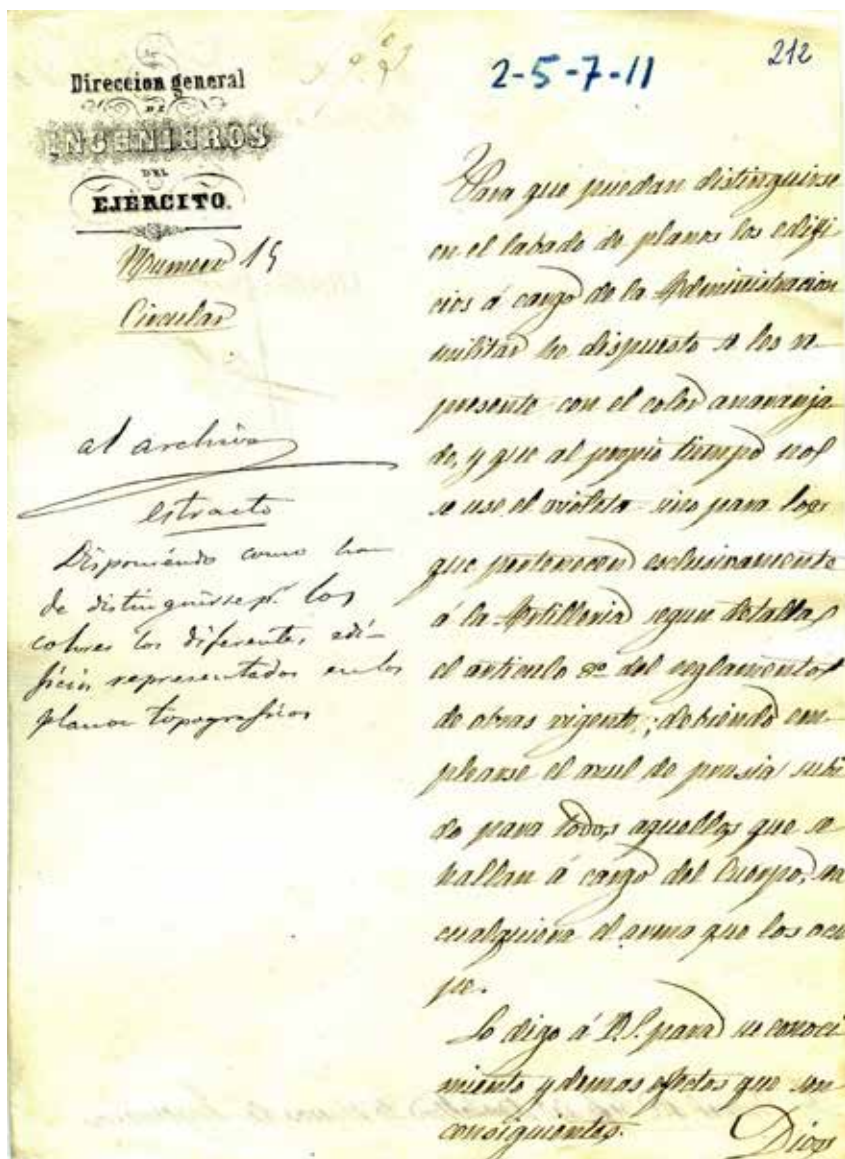 212
2-5-7-11
Direccion general
DE
INGENIEROS
DEL
EJÉRCITO.
Numero 15
Circular
al archivo
estracto
Disponiendo como han
de distinguirse pr. los
colores los diferentes edi-
ficios representados en los
planos topograficos
Para que puedan distinguirse
en el labado de planos los edifi
cios á cargo de la Administracion
militar he dispuesto se los re-
presente con el color anaranja-
do, y que al propio tiempo no
se use el violeta sino para los
que pertenecen esclusivamente
á la Artilleria segun detalla
el articulo 8º del reglamento
de obras vigente; debiendo em-
plearse el azul de prusia subi
do para todos aquellos que se
hallan á cargo del Cuerpo, sea
cualquiera el arma que los ocu
pe.
Lo digo á V.S. para su conoci
miento y demas efectos que son
consiguientes.
Dios